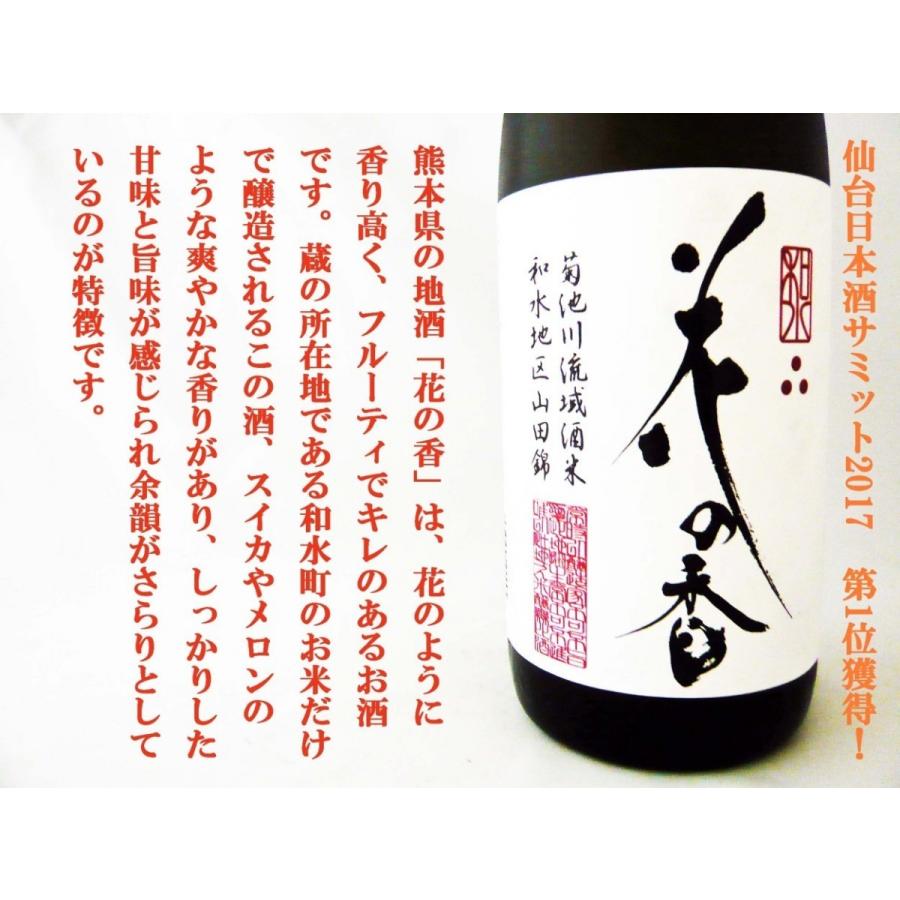 仙台日本酒サミット2017　第1位獲得！
花の香
菊池川流域酒米
和水地区山田錦
熊本県の地酒「花の香」は、花のように
香り高く、フルーティでキレのあるお酒
です。蔵の所在地である和水町のお米だけ
で醸造されるこの酒、スイカやメロンの
ような爽やかな香りがあり、しっかりした
甘味と旨味が感じられ余韻がさらりとして
いるのが特徴です。